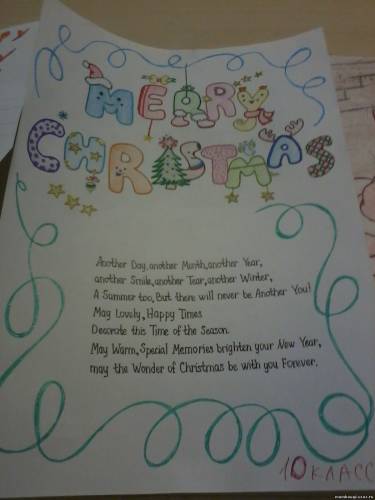 MERRY
CHRISTMAS
Another Day, another Month, another Year,
another Smile, another Tear, another Winter,
A Summer too, But there will never be Another You!
May Lovely, Happy Times
Decorate this Time of the Season
May Warm, Special Memories brighten your New Year,
may the Wonder of Christmas be with you Forever.
10 КЛАСС